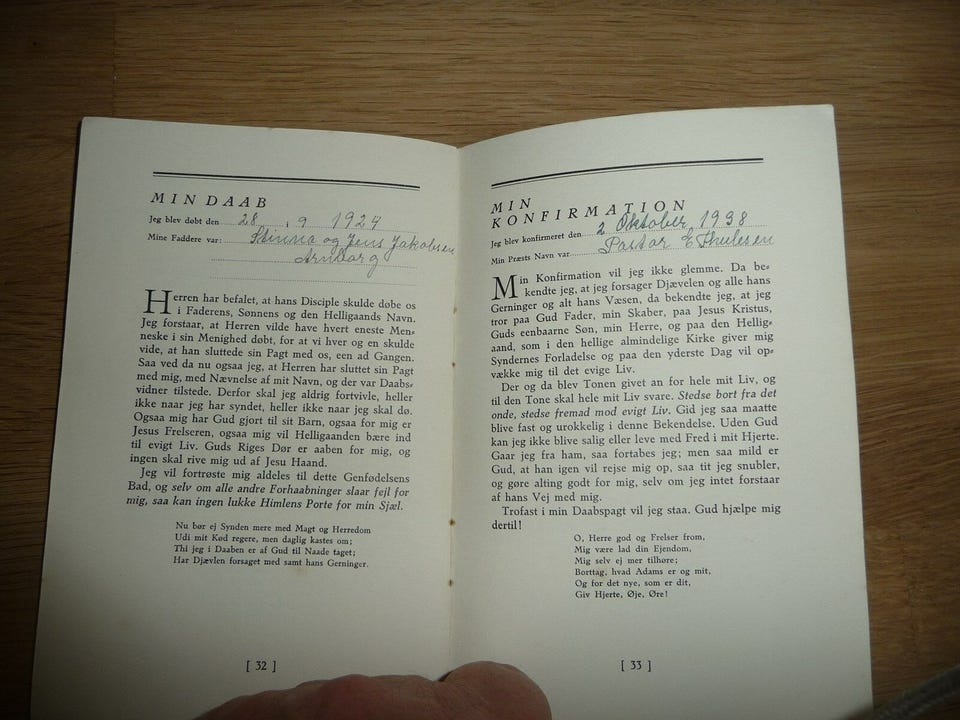 MIN DAAB
Jeg blev døbt den 28 . 9 1924
Mine Faddere var: Stinna og Jens Jakobsen
Arnborg
Herren har befalet, at hans Disciple skulde døbe os
i Faderens, Sønnens og den Helligaands Navn.
Jeg forstaar, at Herren vilde have hvert eneste Men-
neske i sin Menighed døbt, for at vi hver og en skulde
vide, at han sluttede sin Pagt med os, een ad Gangen.
Saa ved da nu ogsaa jeg, at Herren har sluttet sin Pagt
med mig, med Nævnelse af mit Navn, og der var Daabs-
vidner tilstede. Derfor skal jeg aldrig fortvivle, heller
ikke naar jeg har syndet, heller ikke naar jeg skal dø.
Ogsaa mig har Gud gjort til sit Barn, ogsaa for mig er
Jesus Frelseren, ogsaa mig vil Helligaanden bære ind
til evigt Liv. Guds Riges Dør er aaben for mig, og
ingen skal rive mig ud af Jesu Haand.
Jeg vil fortrøste mig aldeles til dette Genfødelsens
Bad, og selv om alle andre Forhaabninger slaar fejl for
mig, saa kan ingen lukke Himlens Porte for min Sjæl.
Nu bør ej Synden mere med Magt og Herredom
Udi mit Kød regere, men daglig kastes om;
Thi jeg i Daaben er af Gud til Naade taget;
Har Djævlen forsaget med samt hans Gerninger.
[ 32 ]
MIN
KONFIRMATION
Jeg blev konfirmeret den 2 Oktober 1938
Min Præsts Navn var Pastor E Thulesen
Min Konfirmation vil jeg ikke glemme. Da be-
kendte jeg, at jeg forsager Djævelen og alle hans
Gerninger og alt hans Væsen, da bekendte jeg, at jeg
tror paa Gud Fader, min Skaber, paa Jesus Kristus,
Guds eenbaarne Søn, min Herre, og paa den Hellig-
aand, som i den hellige almindelige Kirke giver mig
Syndernes Forladelse og paa den yderste Dag vil op-
vække mig til det evige Liv.
Der og da blev Tonen givet an for hele mit Liv, og
til den Tone skal hele mit Liv svare. Stedse bort fra det
onde, stedse fremad mod evigt Liv. Gid jeg saa maatte
blive fast og urokkelig i denne Bekendelse. Uden Gud
kan jeg ikke blive salig eller leve med Fred i mit Hjerte.
Gaar jeg fra ham, saa fortabes jeg; men saa mild er
Gud, at han igen vil rejse mig op, saa tit jeg snubler,
og gøre alting godt for mig, selv om jeg intet forstaar
af hans Vej med mig.
Trofast i min Daabspagt vil jeg staa. Gud hjælpe mig
dertil!
O, Herre god og Frelser from,
Mig være lad din Ejendom,
Mig selv ej mer tilhøre;
Borttag, hvad Adams er og mit,
Og for det nye, som er dit,
Giv Hjerte, Øje, Øre!
[ 33 ]